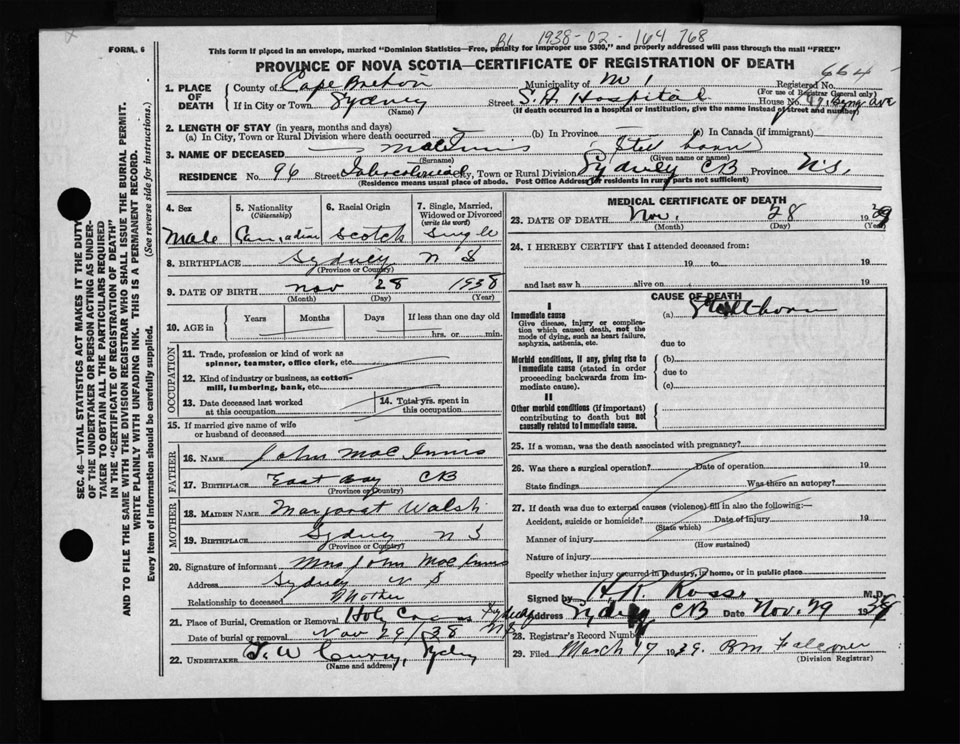 1938-02-164 768
FORM. 6
This form if placed in an envelope, marked "Dominion Statistics—Free, penalty for improper use $300," and properly addressed will pass through the mail "FREE"
PROVINCE OF NOVA SCOTIA—CERTIFICATE OF REGISTRATION OF DEATH
664
1. PLACE OF DEATH
County of Cape Breton Municipality of Registered No.
(For use of Registrar General only)
If in City or Town Sydney Street Hospital House No.
(Name) (If death occurred in a hospital or institution, give the name instead of street and number)
2. LENGTH OF STAY (in years, months and days)
(a) In City, Town or Rural Division where death occurred (b) In Province (c) In Canada (if immigrant)
3. NAME OF DECEASED MacInnis (Still born)
(Surname) (Given name or names)
RESIDENCE No. 96 Street City, Town or Rural Division Sydney CB Province N.S.
(Residence means usual place of abode. Post Office Address for residents in rural parts not sufficient)
4. Sex
Male
5. Nationality
(Citizenship)
Canadian
6. Racial Origin
Scotch
7. Single, Married, Widowed or Divorced
(write the word)
Single
8. BIRTHPLACE Sydney N S
(Province or Country)
9. DATE OF BIRTH Nov 28 1938
(Month) (Day) (Year)
10. AGE in
Years Months Days If less than one day old
hrs. or min.
OCCUPATION
11. Trade, profession or kind of work as spinner, teamster, office clerk, etc.
12. Kind of industry or business, as cotton-mill, lumbering, bank, etc.
13. Date deceased last worked at this occupation
14. Total yrs. spent in this occupation
15. If married give name of wife or husband of deceased
FATHER
16. NAME John MacInnis
17. BIRTHPLACE East Bay CB
(Province or Country)
MOTHER
18. MAIDEN NAME Margaret Walsh
19. BIRTHPLACE Sydney N S
(Province or Country)
20. Signature of informant Mrs John MacInnis
Address Sydney N S
Relationship to deceased Mother
21. Place of Burial, Cremation or Removal Holy Cross Sydney
Date of burial or removal Nov 29/38 NS
22. UNDERTAKER T. W Curry, Sydney
(Name and address)
MEDICAL CERTIFICATE OF DEATH
23. DATE OF DEATH Nov. 28 19
(Month) (Day) (Year)
24. I HEREBY CERTIFY that I attended deceased from:
19 to 19
and last saw h alive on 19
CAUSE OF DEATH
I
Immediate cause
Give disease, injury or complication which caused death, not the mode of dying, such as heart failure, asphyxia, asthenia, etc.
(a) Stillborn
due to
Morbid conditions, if any, giving rise to immediate cause (stated in order proceeding backwards from immediate cause).
(b)
due to
(c)
II
Other morbid conditions (if important) contributing to death but not causally related to immediate cause.
25. If a woman, was the death associated with pregnancy?
26. Was there a surgical operation? Date of operation 19
State findings Was there an autopsy?
27. If death was due to external causes (violence) fill in also the following:—
Accident, suicide or homicide? Date of injury 19
(State which)
Manner of injury
(How sustained)
Nature of injury
Specify whether injury occurred in industry, in home, or in public place
Signed by H. R. Ross M.D.
Address Sydney CB Date Nov. 29 1938
28. Registrar's Record Number
29. Filed March 17 1939. BM Falconer
(Division Registrar)
SEC. 46—VITAL STATISTICS ACT MAKES IT THE DUTY OF THE UNDERTAKER OR PERSON ACTING AS UNDERTAKER TO OBTAIN ALL THE PARTICULARS REQUIRED IN THE "CERTIFICATE OF REGISTRATION OF DEATH" AND TO FILE THE SAME WITH THE DIVISION REGISTRAR WHO SHALL ISSUE THE BURIAL PERMIT.
WRITE PLAINLY WITH UNFADING INK. THIS IS A PERMANENT RECORD.
Every item of information should be carefully supplied. (See reverse side for instructions.)